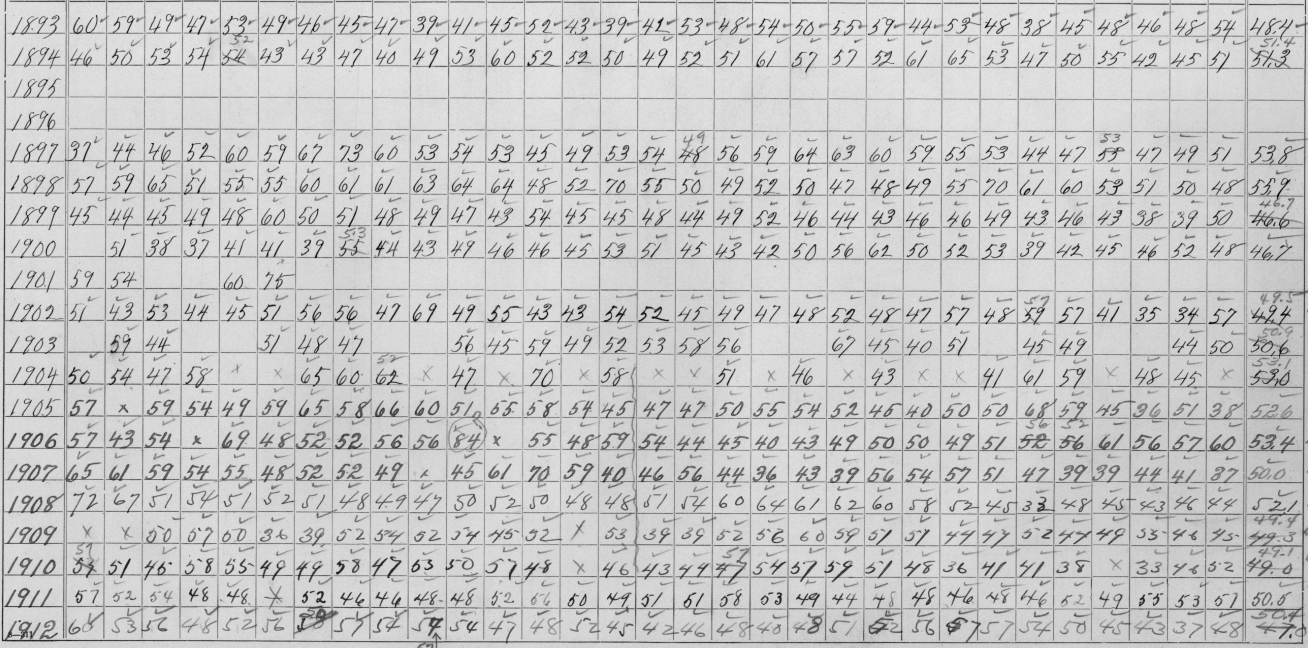 1893 60 59 49 47 53 49 46 45 47 39 41 45 52 43 39 42 53 48 54 50 55 59 44 53 48 38 45 48 46 48 54 48.4
52 51.4
1894 46 50 53 54 54 43 43 47 40 49 53 60 52 52 50 49 52 51 61 57 57 52 61 65 53 47 50 55 42 45 51 51.3
1895
1896
49 53
1897 37 44 46 52 60 59 67 73 60 53 54 53 45 49 53 54 48 56 59 64 63 60 59 55 53 44 47 55 47 49 51 53.8
1898 57 59 65 51 55 55 60 61 61 63 64 64 48 52 70 55 50 49 52 50 47 48 49 55 70 61 60 53 51 50 48 55.9
46.7
1899 45 44 45 49 48 60 50 51 48 49 47 43 54 45 45 48 44 49 52 46 44 43 46 46 49 43 46 43 38 39 50 46.6
53
1900 51 38 37 41 41 39 55 44 43 49 46 46 45 53 51 45 43 42 50 56 62 50 52 53 39 42 45 46 52 48 46.7
1901 59 54 60 75
57 49.5
1902 51 43 53 44 45 51 56 56 47 69 49 55 43 43 54 52 45 49 47 48 52 48 47 57 48 59 57 41 35 34 57 49.4
50.9
1903 59 44 51 48 47 56 45 59 49 52 53 58 56 67 45 40 51 45 49 44 50 50.6
52 53.1
1904 50 54 47 58 x x 65 60 62 x 47 x 70 x 58 x x 51 x 46 x 43 x x 41 61 59 x 48 45 x 53.0
1905 57 x 59 54 49 59 65 58 66 60 51 55 58 54 45 47 47 50 55 54 52 45 40 50 50 68 59 45 36 51 38 52.6
56 52
1906 57 43 54 x 69 48 52 52 56 56 84 x 55 48 59 54 44 45 40 43 49 50 50 49 51 52 56 61 56 57 60 53.4
1907 65 61 59 54 55 48 52 52 49 x 45 61 70 59 40 46 56 44 36 43 39 56 54 57 51 47 39 39 44 41 37 50.0
1908 72 67 51 54 51 52 51 48 49 47 50 52 50 48 48 51 54 60 64 61 62 60 58 52 45 33 48 45 43 46 44 52.1
49.4
1909 x x 50 57 50 36 39 52 54 52 54 45 52 x 53 39 39 52 56 60 59 51 51 44 47 52 44 49 53 46 45 49.3
57 57 49.1
1910 51 45 58 55 49 49 58 47 53 50 57 48 x 46 43 44 47 54 57 59 51 48 36 41 41 38 x 33 46 52 49.0
1911 57 52 54 48 48 x 52 46 46 48 48 52 56 50 49 51 51 58 53 49 44 48 48 46 48 46 52 49 55 53 51 50.5
50 50.4
1912 60 53 56 48 52 56 57 54 54 54 47 48 52 45 42 46 48 40 48 51 52 56 57 57 54 50 45 43 37 48